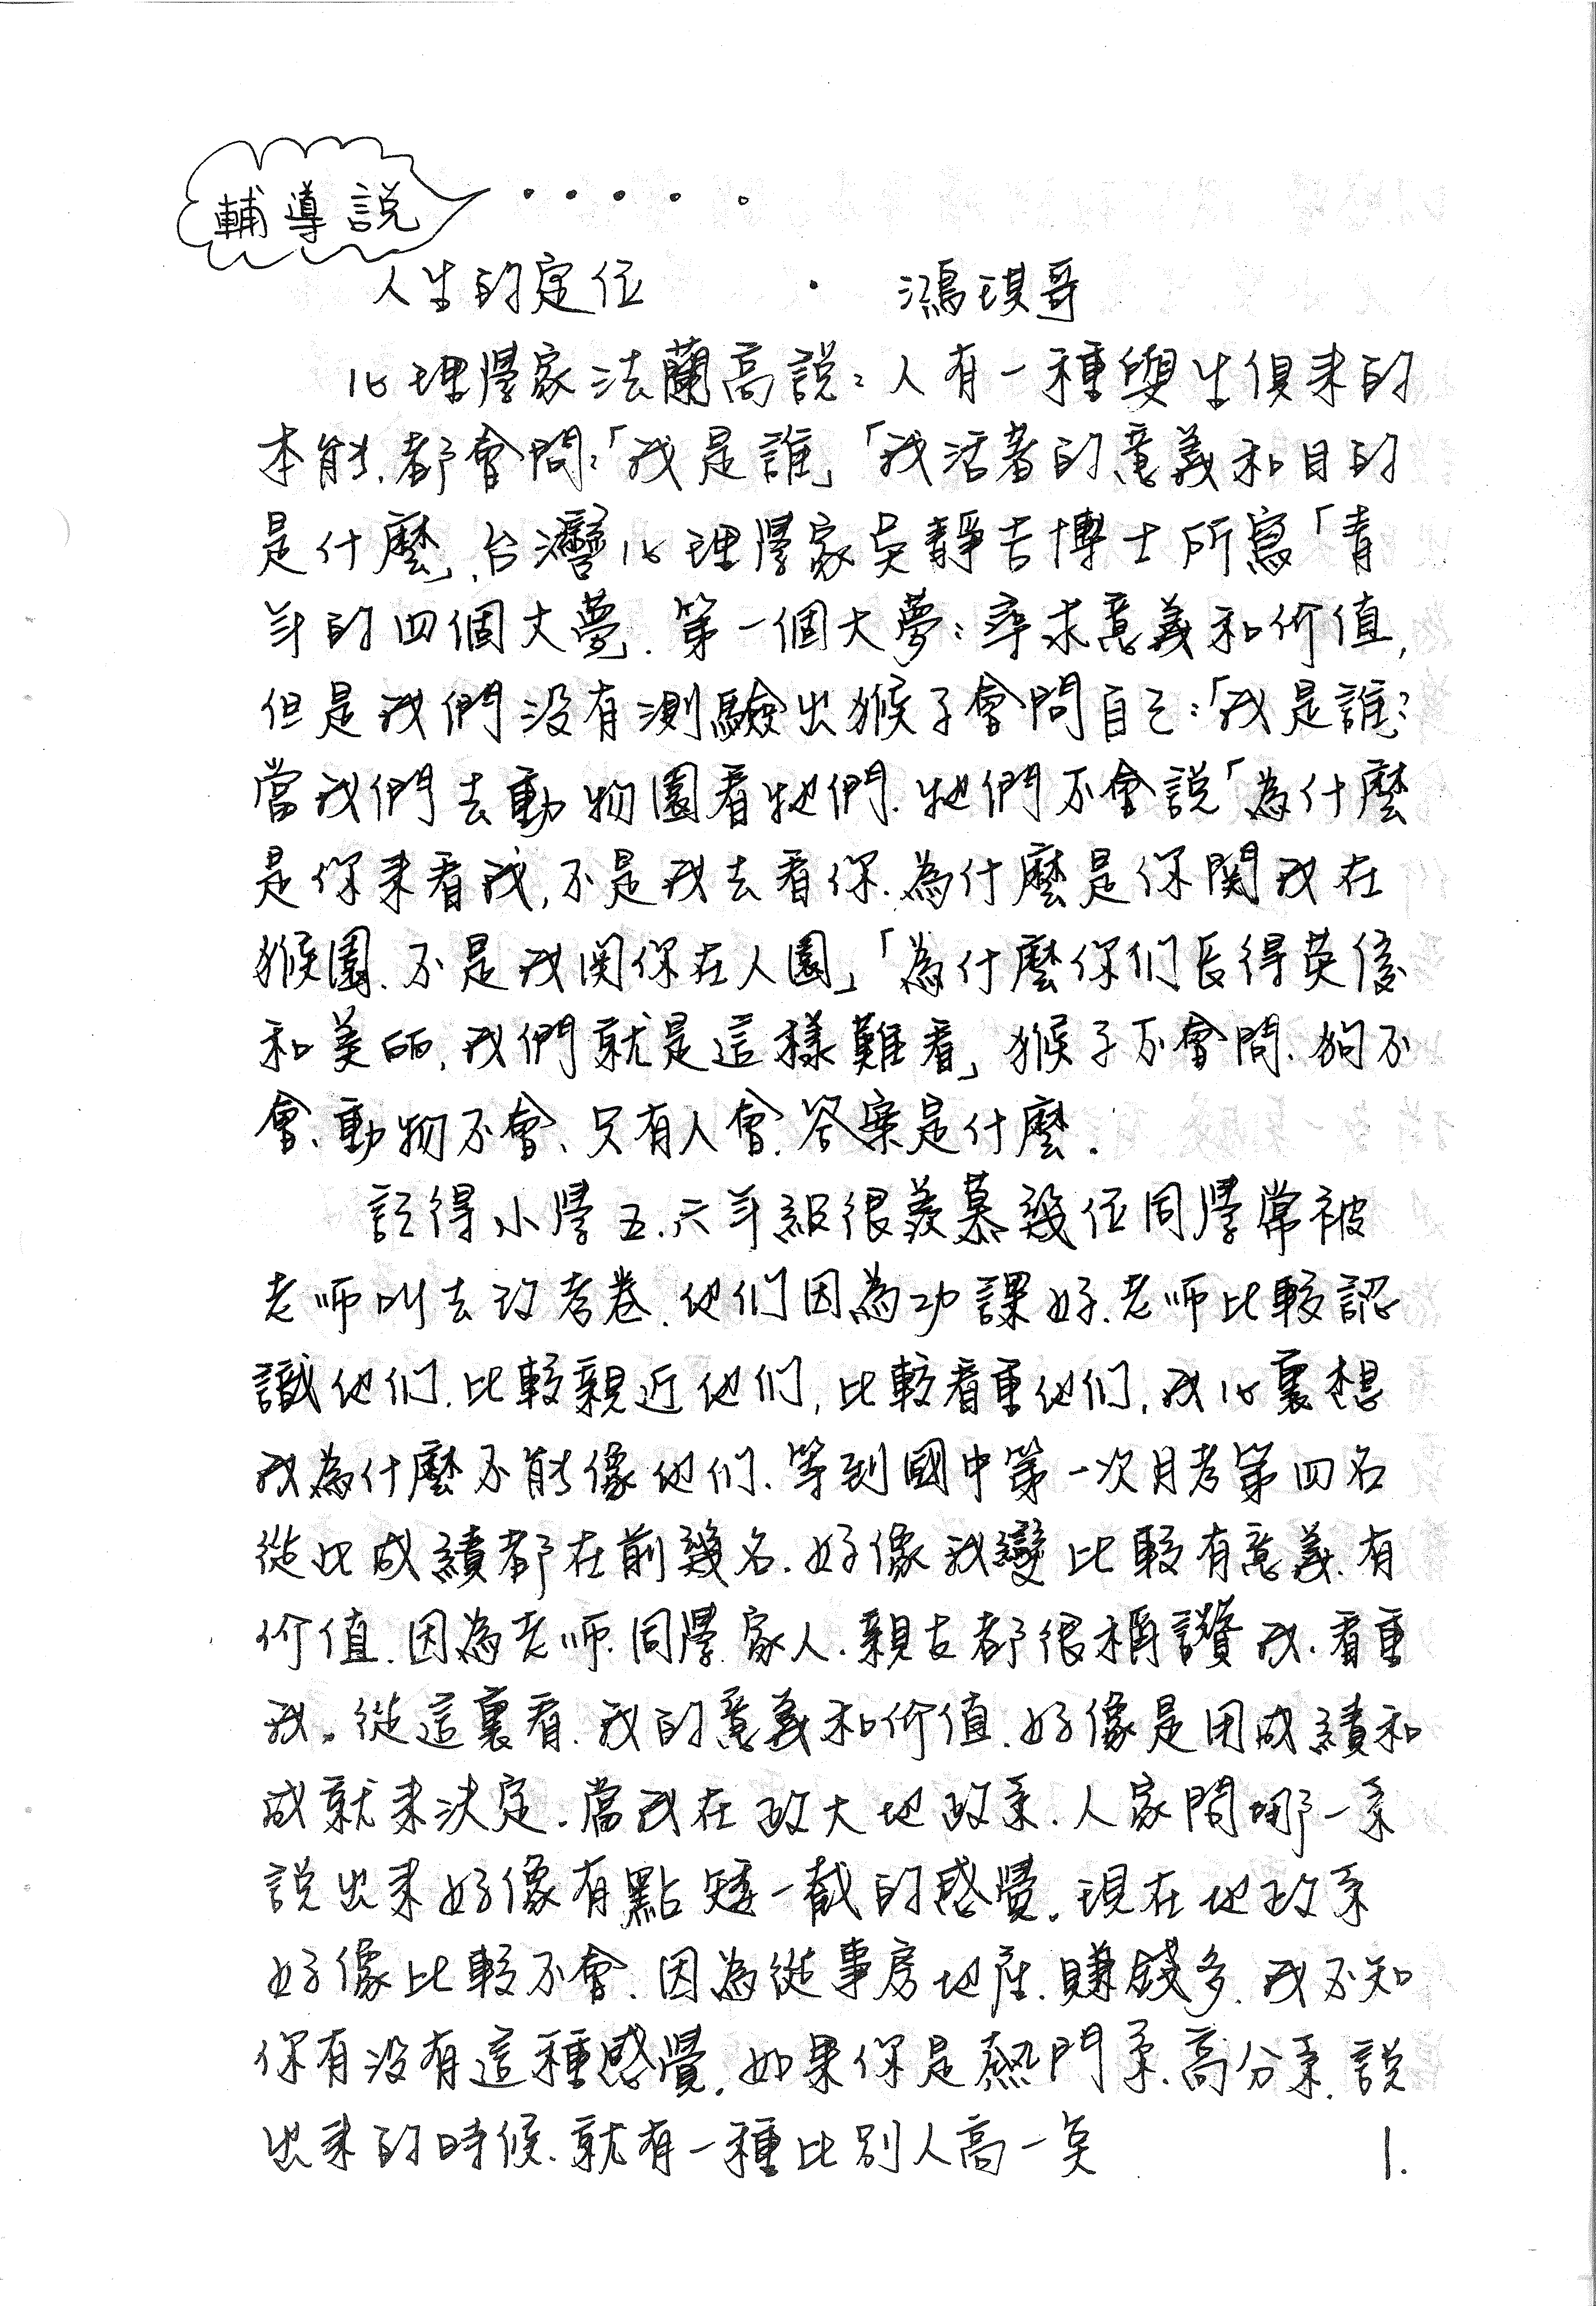 輔導說 . . . . .
人生的定位 · 鴻琪哥
心理學家法蘭高說:人有一種與生俱來的
本能,都會問:「我是誰」「我活著的意義和目的
是什麼」,台灣心理學家吳靜吉博士所寫「青
年的四個大夢」.第一個大夢:尋求意義和价值,
但是我們没有測驗出猴子會問自己:「我是誰?
當我們去動物園看牠們.牠們不會說「為什麼
是你来看我,不是我去看你.為什麼是你関我在
猴園.不是我関你在人園」「為什麼你们長得英俊
和美丽,我們就是這樣難看」猴子不會問.狗不
會、動物不會、只有人會.答案是什麼.
記得小學五.六年級很羨慕幾位同學常被
老师叫去改考卷.他们因為功課好.老师比較認
識他们.比較親近他们,比較看重他们,我心裏想
我為什麼不能像他们.等到國中第一次月考第四名
從此成績都在前幾名.好像我變比較有意義.有
价值.因為老师.同學.家人.親友都很稱讚我.看重
我。從這裏看.我的意義和价值.好像是用成績和
成就来決定.當我在政大地政系.人家問哪一系
說出来好像有點矮一截的感覺.現在地政系
好像比較不會.因為從事房地產.賺錢多.我不知
你有没有這種感覺.如果你是熱門系.高分系.說
出来的時候.就有一種比別人高一矣
1.